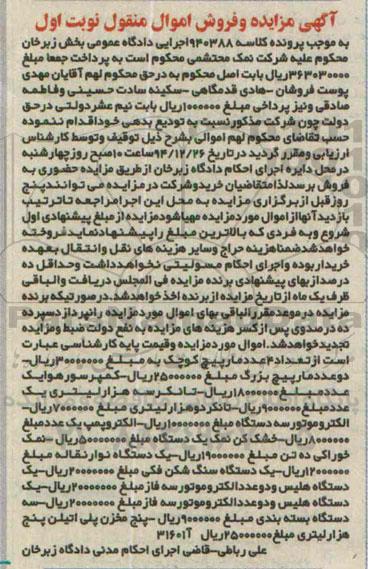 آگهی مزایده وفروش اموال منقول نوبت اول
به موجب پرونده کلاسه ۹۴۰۳۸۸اجرایی دادگاه عمومی بخش زبرخان
محکوم علیه شرکت نمک محتشمی محکوم است به پرداخت جمعا مبلغ
۳۶۳۰۳۰۰۰۰ریال بابت اصل محکوم به درحق محکوم لهم آقایان مهدی
پوست فروشان -هادی قدمگاهی -سکینه سادت حسینی وفاطمه
صادقی ونیز پرداخی مبلغ ۱۰۰۰۰۰۰ریال بابت نیم عشردولتی درحق
دولت چون شرکت مذکورنسبت به تودیع بدهی خوداقدام ننموده
حسب تقاضای محکوم لهم اموالی بشرح ذیل توقیف وتوسط کارشناس
ارزیابی ومقرر گردید در تاریخ ۹۴/۱۲/۲۶ساعت ۱۰صبح روزچهارشنبه
در محل دایره اجرای احکام دادگاه زبرخان ازطریق مزایده حضوری به
فروش برسدلذامتقاضیان خریدوشرکت در مزایده می توانندپنج
روزقبل ازبرگزاری مزایده به محل این اجرامراجعه تاترتیب
بازدیدآنهااز اموال موردمزایده مهیاشودمزایده از مبلغ پیشنهادی اول
شروع وبه فردی که بالاترین مبلغ راپیشنهادنمایدفروخته
خواهدشدضمناهزینه حراج وسایر هزینه های نقل وانتقال بعهده
خریداربوده واجرای احکام مسولیتی نخواهدداشت وحداقل ده
درصداز بهای پیشنهادی برنده مزایده فی المجلس دریافت والباقی
ظرف یک ماه از تاریخ مزایده از برنده اخذخواهدشد.درصورتیکه برنده
مزایده درموعدمقررالباقی بهای اموال موردمزایده رانپردازدسپرده
ده درصدوی پس ازکسر هزینه های مزایده به نفع دولت ضبط ومزایده
تجدیدخواهدشد.اموال موردمزایده وقیمت پایه کارشناسی عبارت
است از تعداد۴عددمارپیچ کوچک به مبلغ ۳۰۰۰۰۰۰۰ریال-
دوعددمارپیچ بزرگ مبلغ ۲۵۰۰۰۰۰۰ریال-کمپرسورهوایک
عددمبلغ ۱۸۰۰۰۰۰۰ریال-تانکرسه هزارلیتری یک
عددمبلغ ۹۰۰۰۰۰۰ریال-تانکردوهزارلیتری مبلغ ۷۰۰۰۰۰۰ریال-
الکتروموتورسه دستگاه مبلغ ۱۰۰۰۰۰۰۰ریال-الکتروپمپ یک عددمبلغ
۸۰۰۰۰۰۰ریال-خشک کن نمک یک دستگاه مبلغ ۵۰۰۰۰۰۰۰ریال-نمک
خوراکی ده تن مبلغ ۱۹۰۰۰۰۰۰ریال-یک دستگاه نوارنقاله مبلغ
۱۲۰۰۰۰۰۰ریال-یک دستگاه سنگ شکن فکی مبلغ ۲۰۰۰۰۰۰۰ریال-یک
دستگاه هلیس ودوعددالکتروموتورسه فازمبلغ ۲۰۰۰۰۰۰۰ریال-یک
دستگاه هلیس ودوعددالکتروموتورسه فازمبلغ ۲۰۰۰۰۰۰۰ریال-سه
دستگاه بسته بندی مبلغ ۹۰۰۰۰۰۰ریال -پنج مخزن پلی اتیلن پنج
هزارلیتری مبلغ۲۵۰۰۰۰۰۰ریال آ۳۱۶۰۱
علی رباطی-قاضی اجرای احکام مدنی دادگاه زبرخان